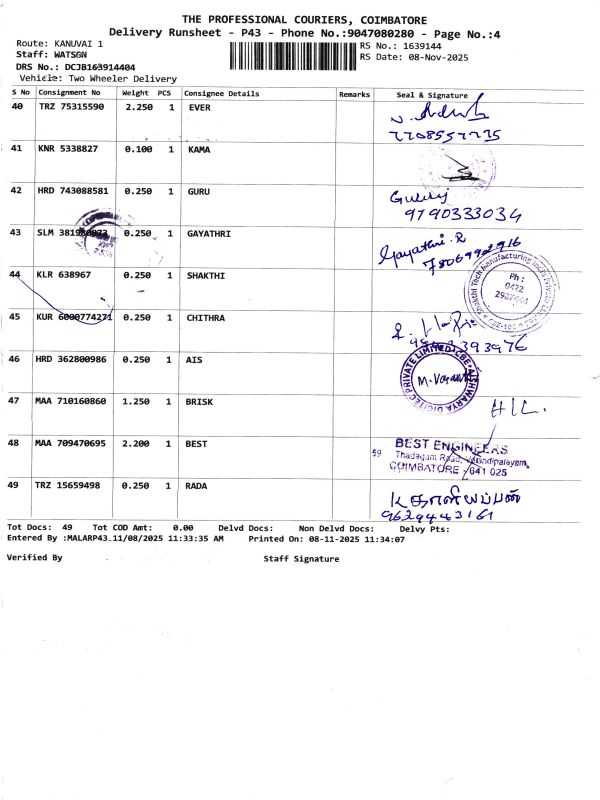 THE PROFESSIONAL COURIERS, COIMBATORE
Delivery Runsheet - P43 - Phone No.:9047080280 - Page No.:4
Route: KANUVAI 1
Staff: WATSON
DRS No.: DCJB163914404
Vehicle: Two Wheeler Delivery
RS No.: 1639144
RS Date: 08-Nov-2025
S No Consignment No Weight PCS Consignee Details Remarks Seal & Signature
40 TRZ 75315590 2.250 1 EVER
41 KNR 5338827 0.100 1 KAMA
42 HRD 743088581 0.250 1 GURU
Guruj
9790333034
43 SLM 381980073 0.250 1 GAYATHRI
Gayathri.R
7806992916
44 KLR 638967 0.250 1 SHAKTHI
Shakthi Tech Manufacturing India Private Ltd
Ph :
0422
CBE-108
45 KUR 6000774271 0.250 1 CHITHRA
46 HRD 362800986 0.250 1 AIS
AISHWARYA DIGITEC PRIVATE LIMITED CBE
47 MAA 710160860 1.250 1 BRISK
HIL.
48 MAA 709470695 2.200 1 BEST
BEST ENGINEERS
59 Thadagam Road, Velandipalayam,
COIMBATORE - 641 025
49 TRZ 15659498 0.250 1 RADA
K காளியப்பன்
9629443161
Tot Docs: 49 Tot COD Amt: 0.00 Delvd Docs: Non Delvd Docs: Delvy Pts:
Entered By :MALARP43.11/08/2025 11:33:35 AM Printed On: 08-11-2025 11:34:07
Verified By Staff Signature